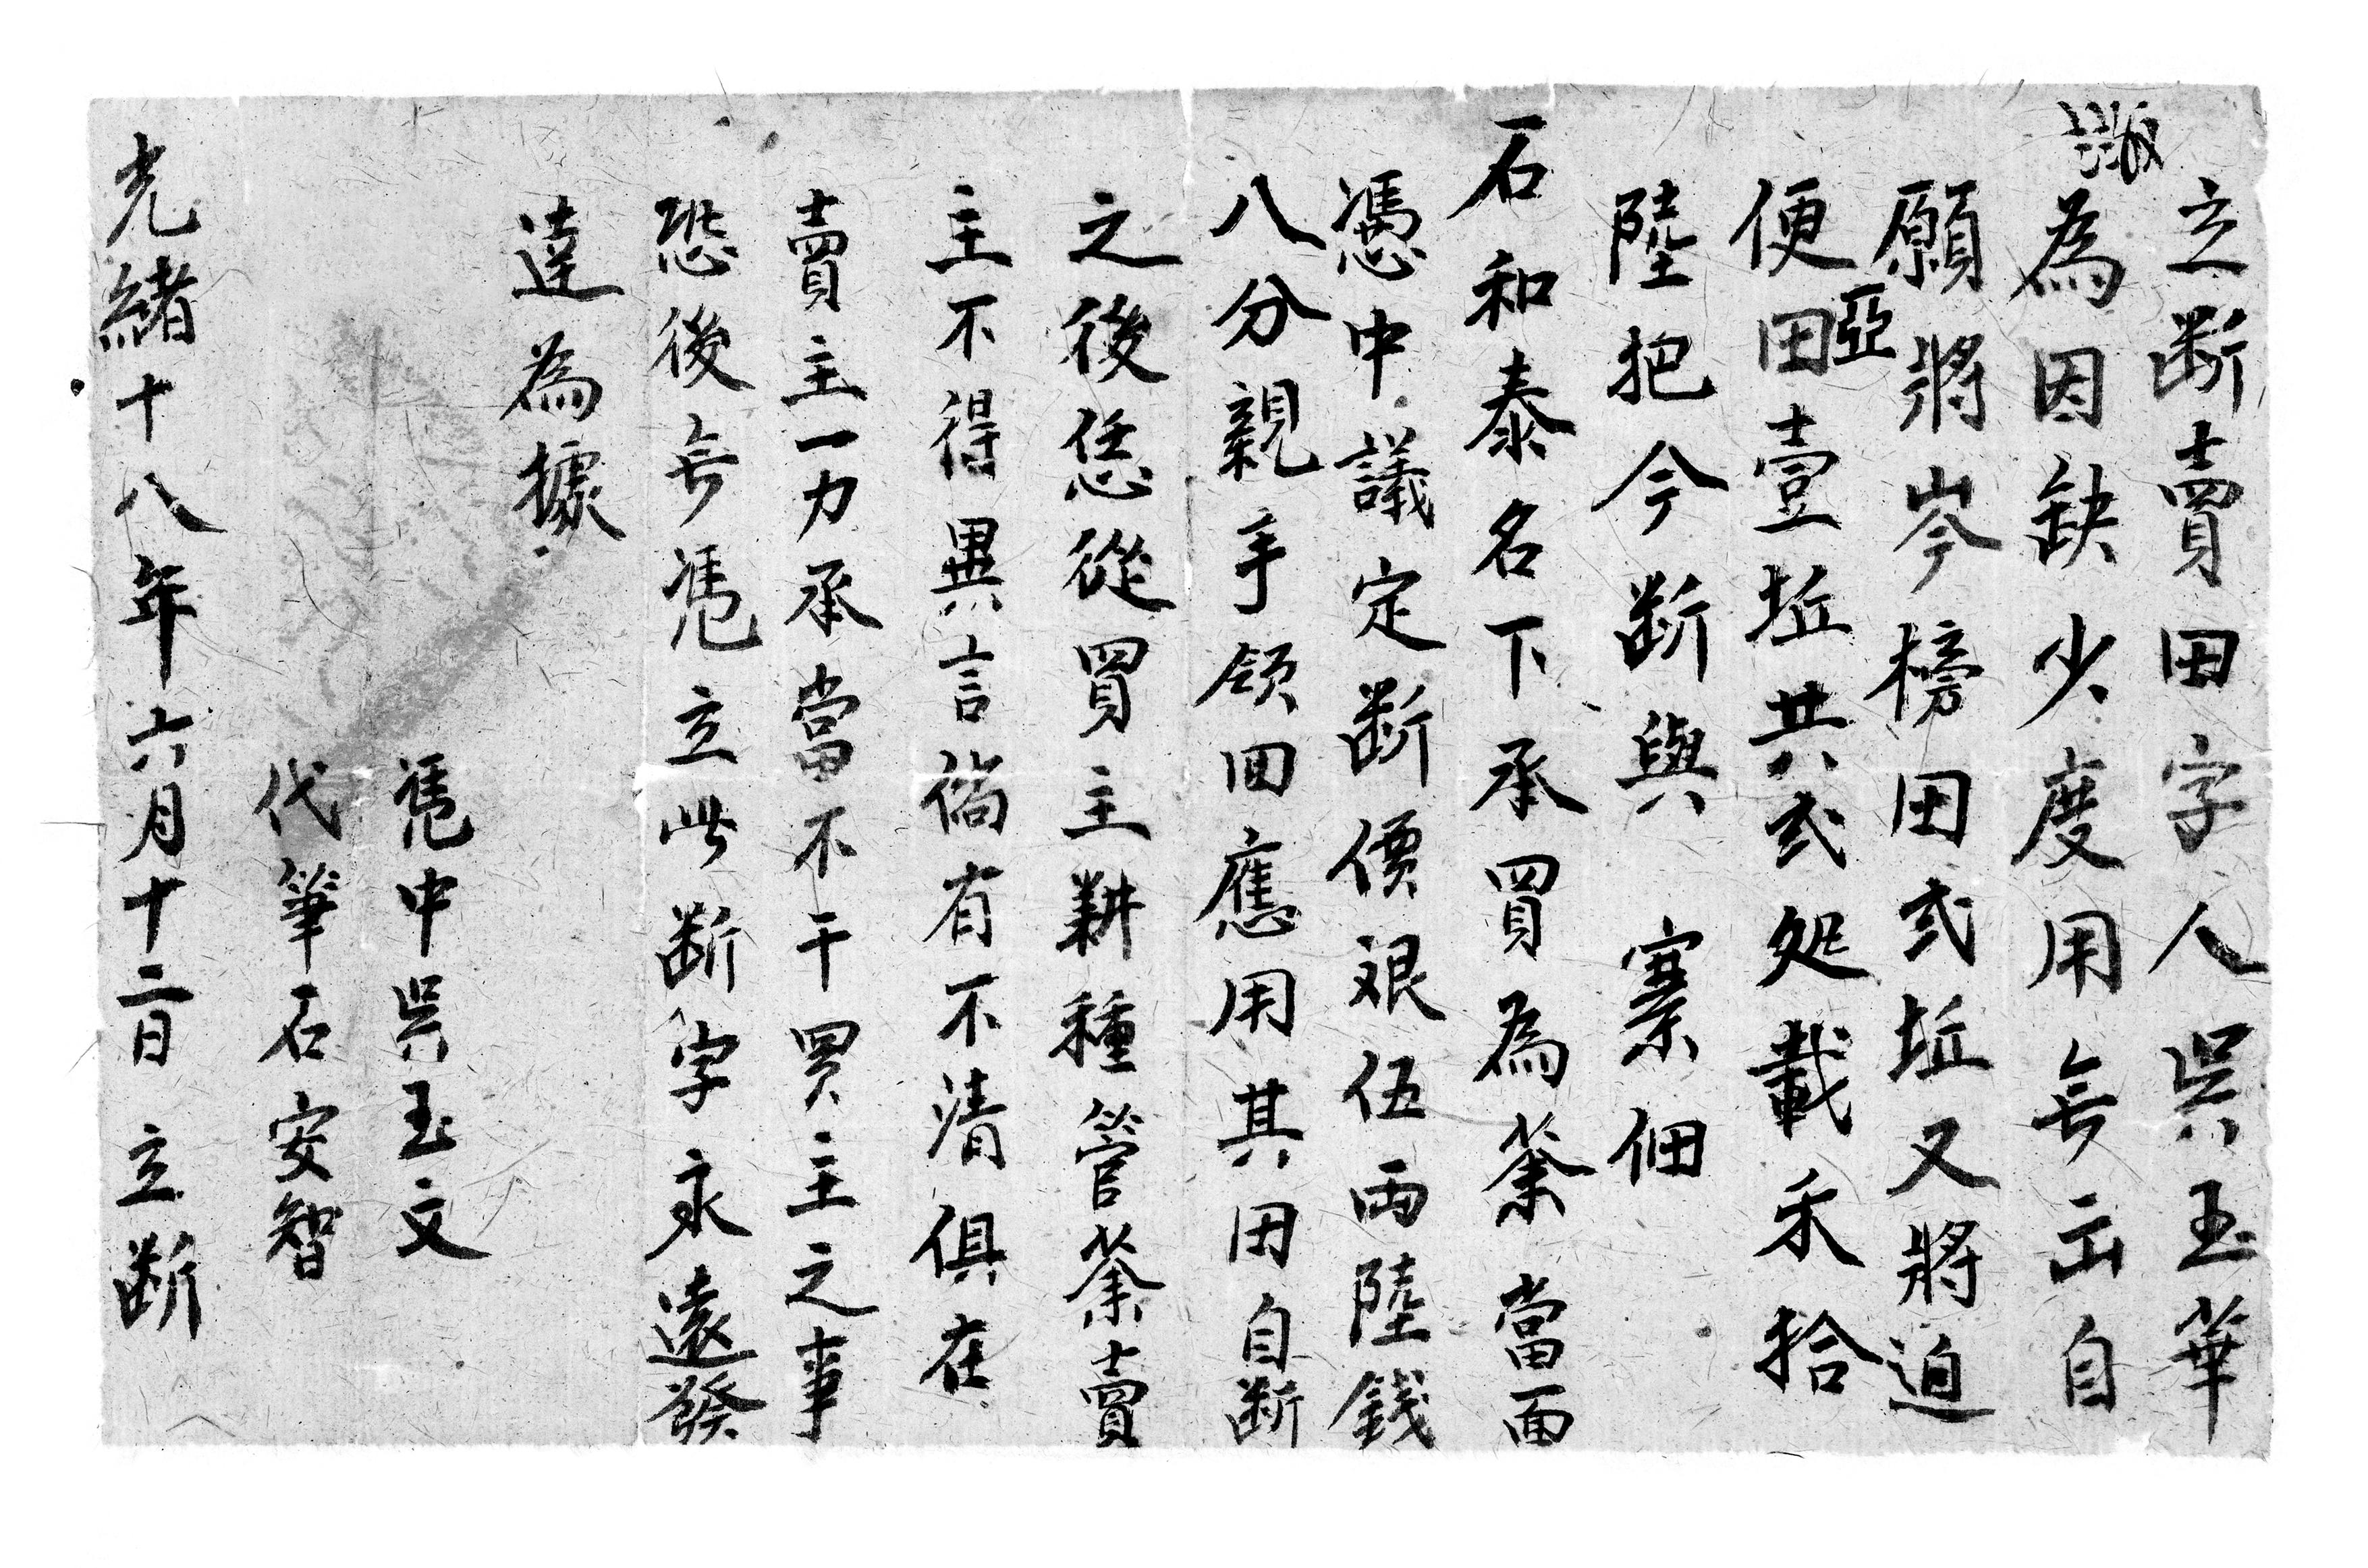 立断賣田字人吳玉華
為因缺少度用無出自
願將岑榜田弍坵又將迫
亞
便田壹坵共弍処載禾拾
陸把今断與　寨佃
石和泰名下承買為業當面
憑中議定断價艮伍両陸錢
八分親手領回應用其田自断
之後恁從買主耕種管業賣
主不得異言倘有不清俱在
賣主一力承當不干買主之事
恐後無凴立此断字永遠發
達為據
凴中吳玉文
代筆石安智
光緒十八年六月十二日　立断